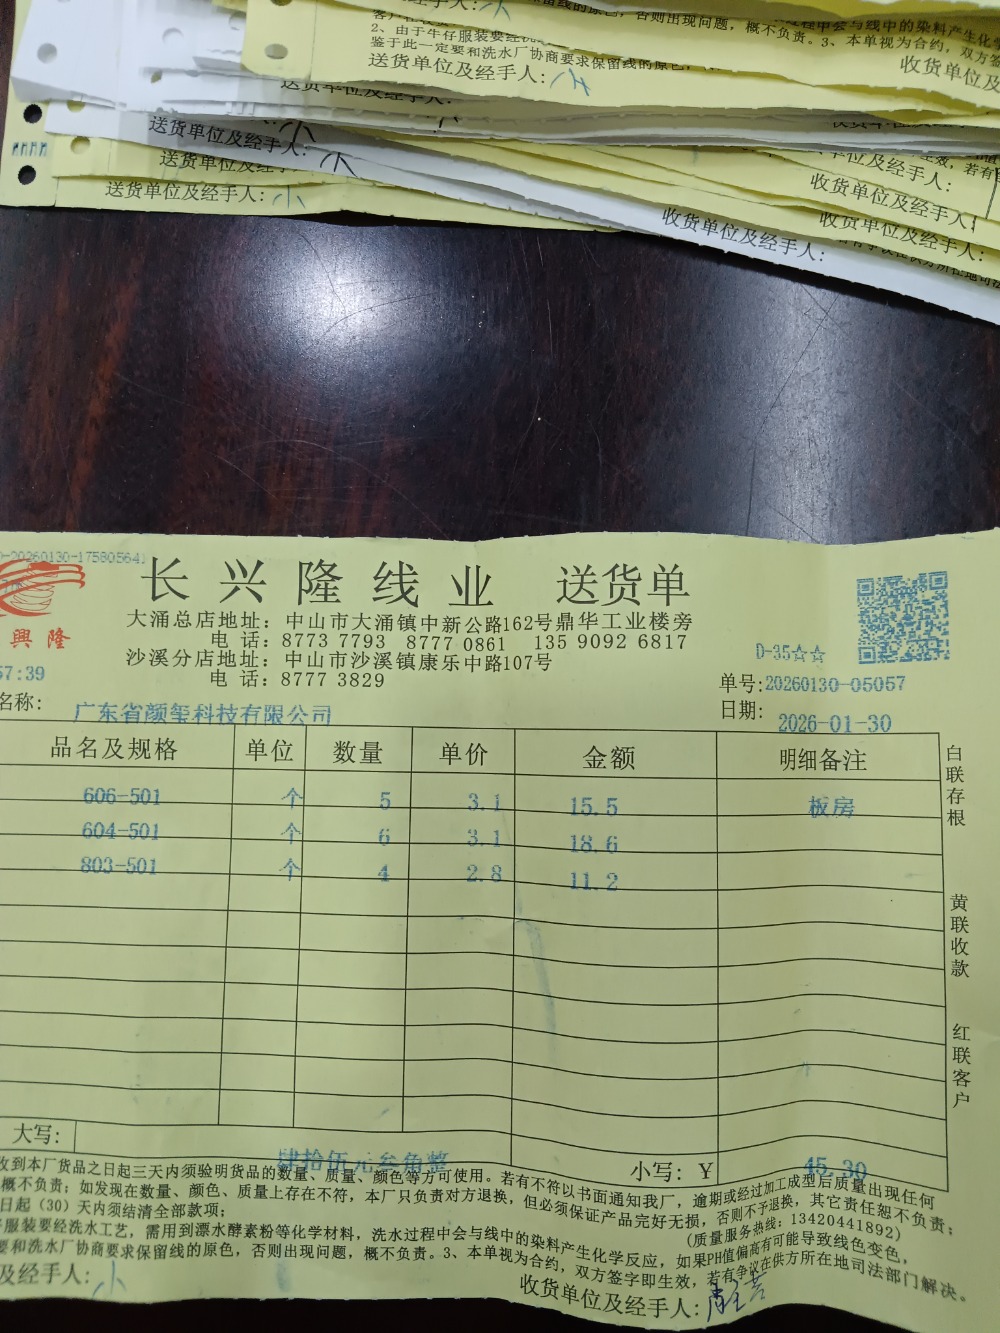 客户在收到
过程中会与线中的染料产生化学
线的原色，否则出现问题，概不负责。3、本单视为合约，双方签
2、由于牛仔服装要经洗
鉴于此一定要和洗水厂协商要求保留线的原色，
送货单位及经手人：小
收货单位及
送货单位及经手人：
送货单位及经手人：小
送货单位及经手人：小
送货单位及经手人：小
收货单位及经手人：
收货单位及经手人：
收货单位及经手人：
-20260130-175805641
长兴隆线业 送货单
興隆
大涌总店地址：中山市大涌镇中新公路162号鼎华工业楼旁
电话：8773 7793 8777 0861 135 9092 6817
沙溪分店地址：中山市沙溪镇康乐中路107号
电话：8777 3829
D-35☆☆
57:39
单号：20260130-05057
名称：广东省颜玺科技有限公司
日期：2026-01-30
品名及规格 单位 数量 单价 金额 明细备注
606-501 个 5 3.1 15.5 板房
604-501 个 6 3.1 18.6
803-501 个 4 2.8 11.2
白联存根
黄联收款
红联客户
大写：肆拾伍元叁角整
小写：Y 45.30
收到本厂货品之日起三天内须验明货品的数量、质量、颜色等方可使用。若有不符以书面通知我厂，逾期或经过加工成型后质量出现任何
概不负责；如发现在数量、颜色、质量上存在不符，本厂只负责对方退换，但必须保证产品完好无损，否则不予退换，其它责任恕不负责；
日起(30)天内须结清全部款项；
(质量服务热线：13420441892)
服装要经洗水工艺，需用到漂水酵素粉等化学材料，洗水过程中会与线中的染料产生化学反应，如果PH值偏高有可能导致线色变色，
要和洗水厂协商要求保留线的原色，否则出现问题，概不负责。3、本单视为合约，双方签字即生效，若有争议在供方所在地司法部门解决。
及经手人：小
收货单位及经手人：